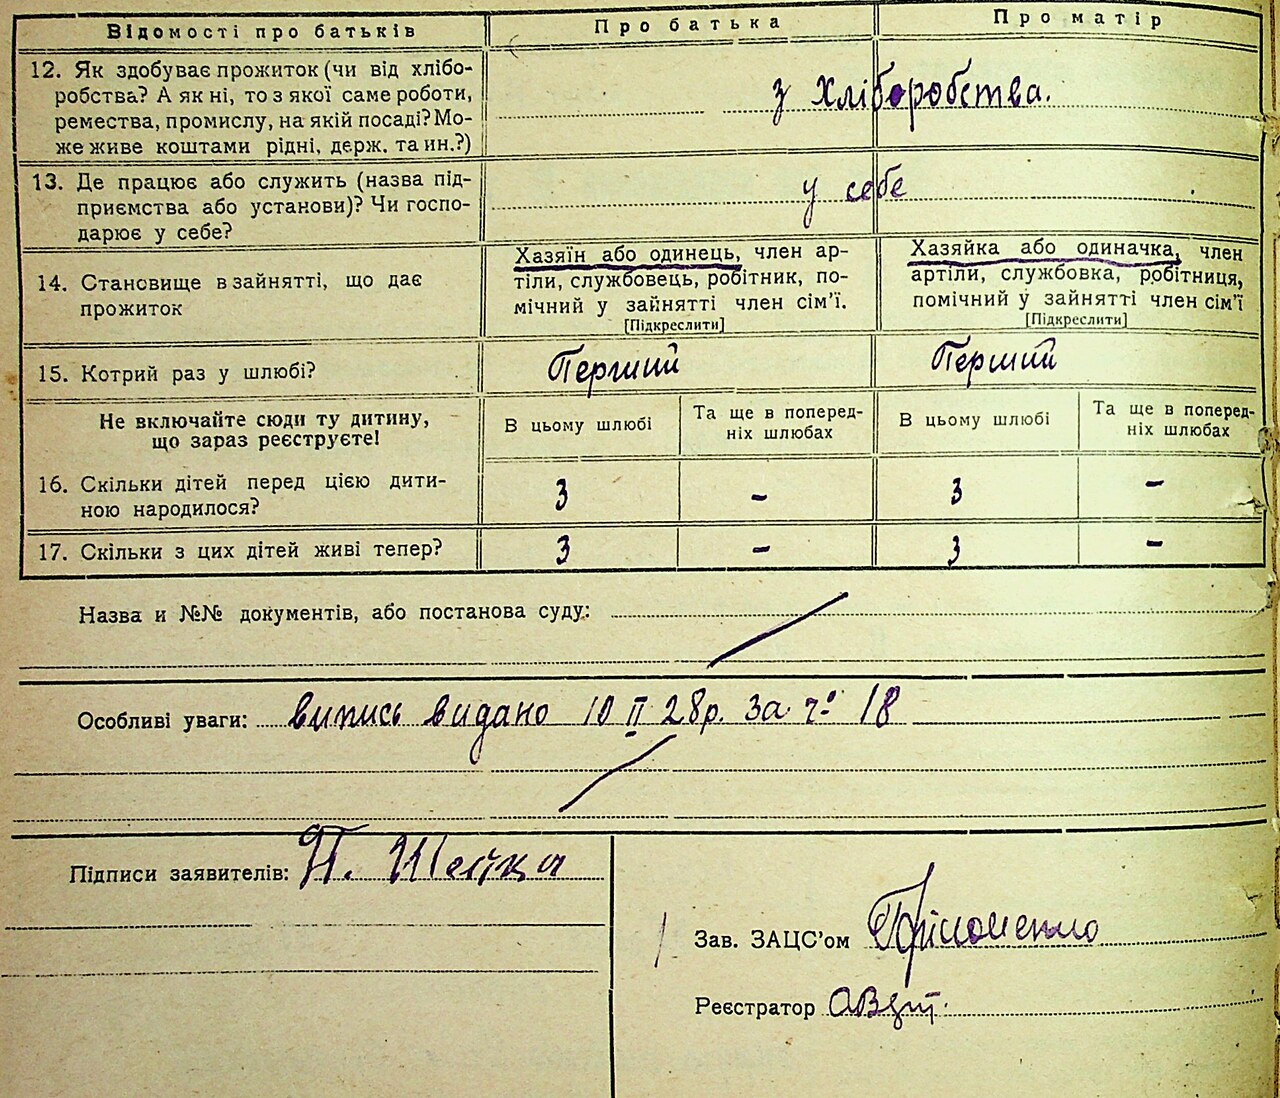 Відомості про батьків
Про батька
Про матір
12. Як здобуває прожиток (чи від хлібо-
робства? А як ні, то з якої саме роботи,
ремества, промислу, на якій посаді? Мо-
же живе коштами рідні, держ. та ин.?)
з хліборобства.
13. Де працює або служить (назва під-
приємства або установи)? Чи госпо-
дарює у себе?
у себе
14. Становище в зайнятті, що дає
прожиток
Хазяїн або одинець, член ар-
тіли, службовець, робітник, по-
мічний у зайнятті член сім'ї.
[Підкреслити]
Хазяйка або одиначка, член
артіли, службовка, робітниця,
помічний у зайнятті член сім'ї
[Підкреслити]
15. Котрий раз у шлюбі?
Перший
Перший
Не включайте сюди ту дитину,
що зараз реєструєте!
В цьому шлюбі
Та ще в поперед-
ніх шлюбах
В цьому шлюбі
Та ще в поперед-
ніх шлюбах
16. Скільки дітей перед цією дити-
ною народилося?
3
-
3
-
17. Скільки з цих дітей живі тепер?
3
-
3
-
Назва и №№ документів, або постанова суду:
Особливі уваги: випись видано 10 II 28р. За ч: 18
Підписи заявителів: П. Шейка
Зав. ЗАЦС'ом
Реєстратор